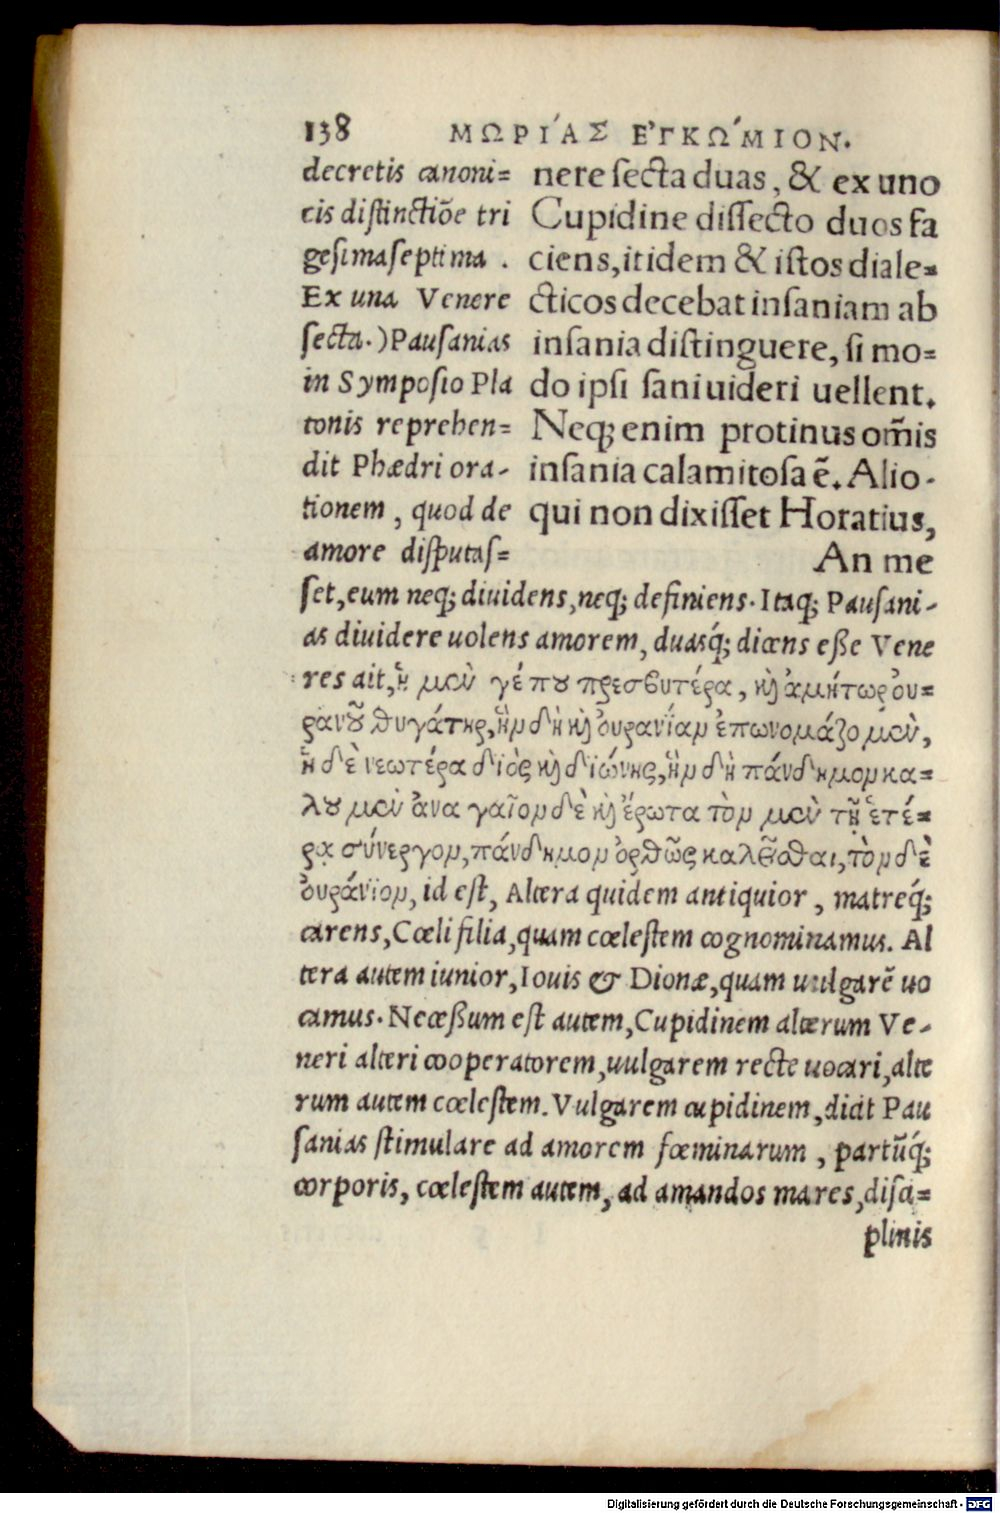 138 ΜΩΡΙ´ΑΣ ΕΓΚΩ´ΜΙΟΝ.
nere ſecta duas, & ex uno
Cupidine diſſecto duos fa
ciens, itidem & iſtos diale=
cticos decebat inſaniam ab
inſania diſtinguere, ſi mo=
do ipſi ſani uideri uellent.
Neq; enim protinus om̄is
inſania calamitoſa ē. Alio-
qui non dixiſſet Horatius,
An me
decretis canoni=
cis diſtinctiōe tri
geſimaſeptima .
Ex una Venere
ſecta.) Pauſanias
in Sympoſio Pla
tonis reprehen=
dit Phædri ora-
tionem, quod de
amore diſputaſ=
ſet, eum neq; diuidens, neq; definiens. Itaq; Pauſani-
as diuidere uolens amorem, duasq́; dicens eße Vene
res ait, ἡ μὲν γέ που πρεσβυτέρα, καὶ ἀμήτωρ ὀυ=
ρανοῦ θυγάτηρ, ἣν δὴ καὶ ὀυρανίαν ἐπωνομάζομεν,
ἡ δὲ νεωτέρα διὸς καὶ διώνης, ἣν δὴ πάνδημον κα=
λουμεν ἀναγαῖον δὲ καὶ ἔρωτα τὸν μὲν τῇ ἑτέ=
ρᾳ σύνεργον, πάνδημον ὀρθῶς καλεῖσθαι, τὸν δὲ
ὀυράνϊον, id eſt, Altera quidem antiquior, matreq́;
carens, Cœli filia, quam cœleſtem cognominamus. Al
tera autem iunior, Iouis & Dionæ, quam uulgarē uo
camus. Neceßum eſt autem, Cupidinem alterum Ve-
neri alteri cooperatorem, uulgarem recte uocari, alte
rum autem cœleſtem. Vulgarem cupidinem, dicit Pau
ſanias ſtimulare ad amorem fœminarum, partūq́;
corporis, cœleſtem autem, ad amandos mares, diſci=
plinis
Digitalisierung gefördert durch die Deutsche Forschungsgemeinschaft - DFG